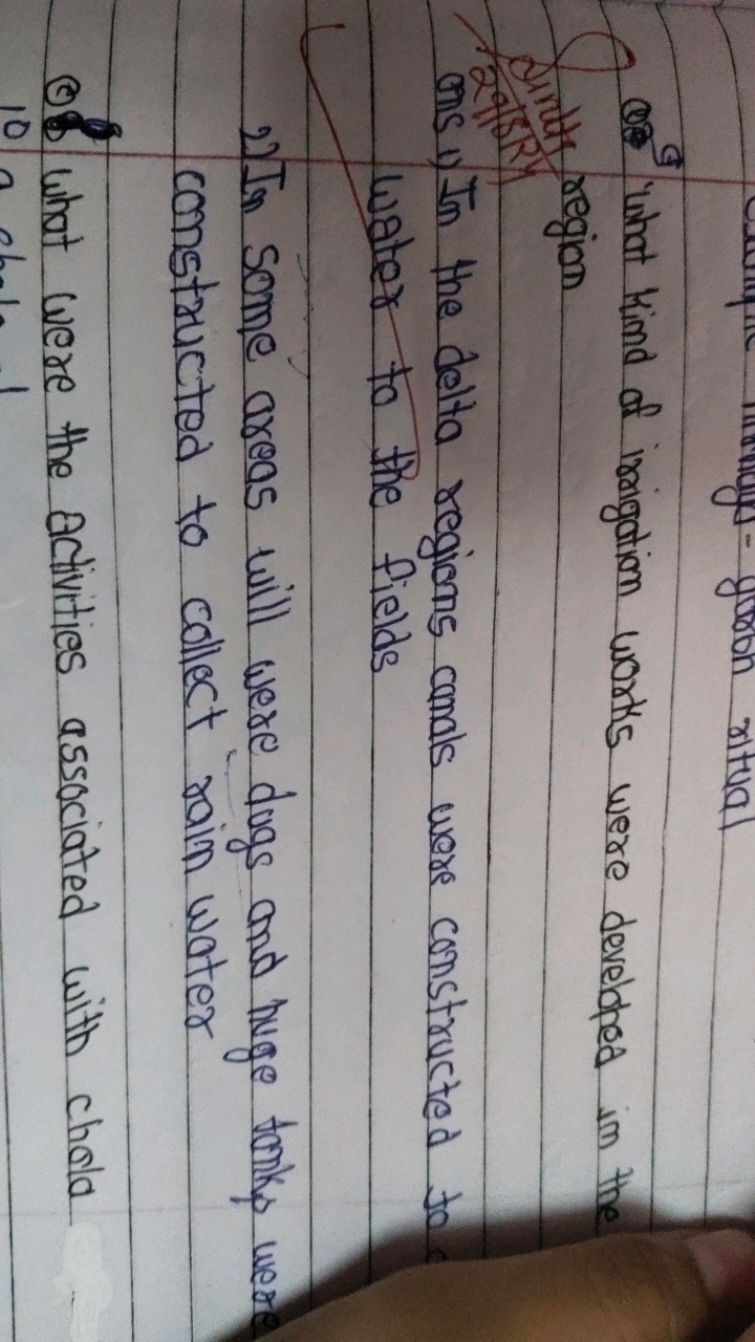 ritual
what kind of irrigation works were developed in the
region
ans 1) In the delta regions canals were constructed to
water to the fields
2) In some areas will were dugs and huge tanks were
constructed to collect rain water
what were the activities associated with chola